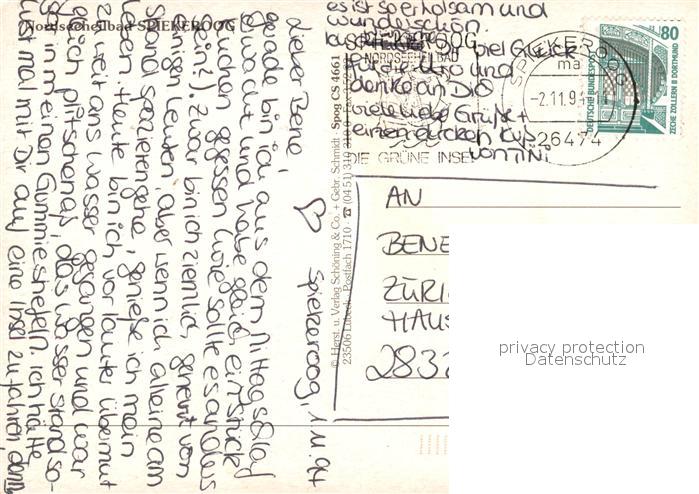 Nordseeheilbad SPIEKEROOG
Spiekeroog, 1.11.94
Lieber Bene,
gerade bin ich aus dem Mittagsschlaf
erwacht und habe gleich ein Stück
Kuchen gegessen (wie sollte es anders
sein?). Zwar bin ich ziemlich genervt von
einigen Leuten, aber wenn ich alleine am
Strand spazierengehe, genieße ich mein
Leben. Heute bin ich vor lauter Übermut
zu weit ans Wasser gegangen und war
gleich pitschenaß, das Wasser stand so-
gar in meinen Gummiestiefeln. Ich hätte
Lust mal mit Dir auf eine Insel zu fahren, denn
es ist sperholsam und
wunderschön.
Ich wünsche Dir viel Glück
für die Uni und
denke an Dich
viele liebe Grüße +
einen dicken Kuß
von TINI
© Herst. u. Verlag Schöning & Co. + Gebr. Schmidt
23506 Lübeck · Postfach 1710 · ☎ (04 51) 310 310
Spog CS 4661
SPIEKEROOG
NORDSEEHEILBAD
DIE GRÜNE INSEL
SPIEKEROOG
ma
-2.11.9
26474
80
DEUTSCHE BUNDESPOST
ZECHE ZOLLERN II DORTMUND
AN
BENE
ZÜRI
HAUS
2832
privacy protection
Datenschutz